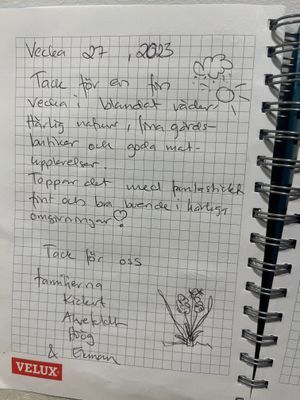 Vecka 27, 2023
Tack för en fin
vecka i blandat väder
Härlig natur, fina gårds-
butiker och goda mat-
upplevelser.
Toppar det med fantastiskt
fint och bra boende i härliga
omgivningar!
Tack för oss
familjerna
Kickert
Hoog
& Ekman
VELUX